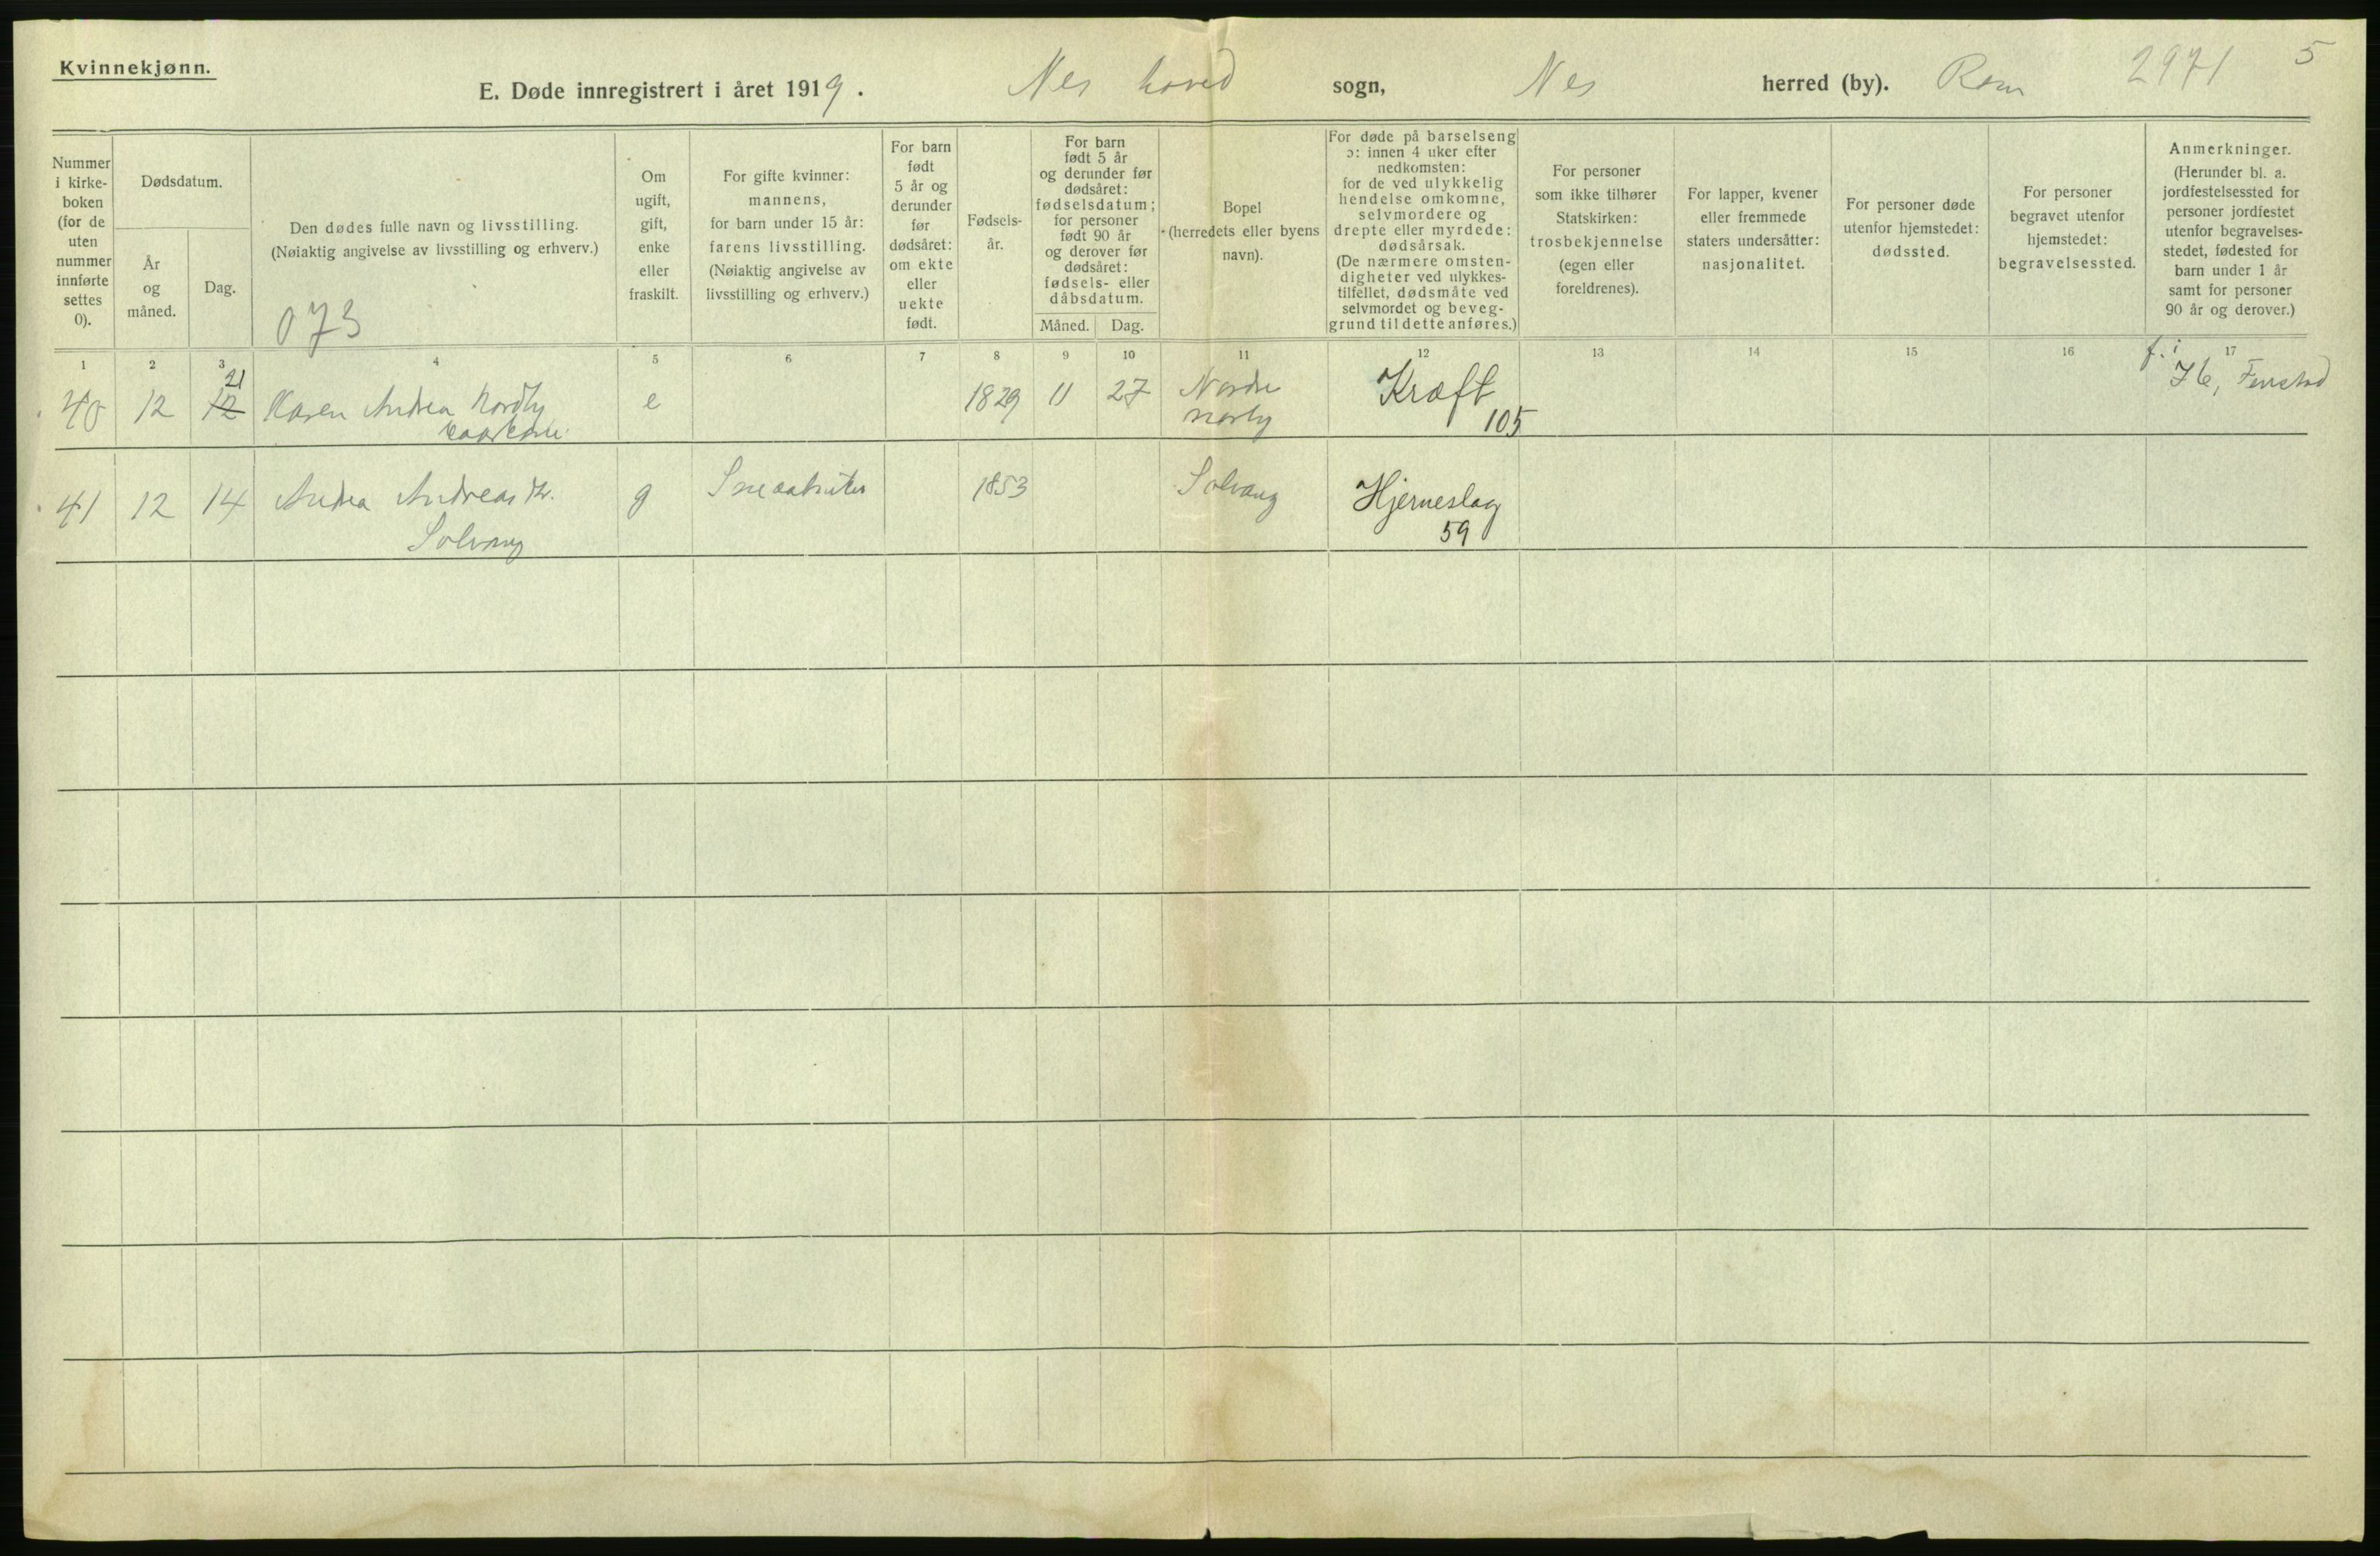 Kvinnekjønn.
E. Døde innregistrert i året 1919. Nes hoved sogn, Nes herred (by). Rom 2971 5
Nummer i kirke- boken (for de uten nummer innførte settes 0).
Dødsdatum.
År og måned.
Dag.
Den dødes fulle navn og livsstilling.
(Nøiaktig angivelse av livsstilling og erhverv.)
073
Om ugift, gift, enke eller fraskilt.
For gifte kvinner: mannens, for barn under 15 år: farens livsstilling. (Nøiaktig angivelse av livsstilling og erhverv.)
For barn født 5 år og derunder før dødsåret: om ekte eller uekte født.
Fødsels- år.
For barn født 5 år og derunder før dødsåret: fødselsdatum; for personer født 90 år og derover før dødsåret: fødsels- eller dåbsdatum.
Måned. Dag.
Bopel (herredets eller byens navn).
For døde på barselseng ɔ: innen 4 uker efter nedkomsten: for de ved ulykkelig hendelse omkomne, selvmordere og drepte eller myrdede: dødsårsak. (De nærmere omsten- digheter ved ulykkes- tilfellet, dødsmåte ved selvmordet og beveg- grund til dette anføres.)
For personer som ikke tilhører Statskirken: trosbekjennelse (egen eller foreldrenes).
For lapper, kvener eller fremmede staters undersåtter: nasjonalitet.
For personer døde utenfor hjemstedet: dødssted.
For personer begravet utenfor hjemstedet: begravelsessted.
Anmerkninger. (Herunder bl. a. jordfestelsessted for personer jordfestet utenfor begravelses- stedet, fødested for barn under 1 år samt for personer 90 år og derover.)
1 2 3 4 5 6 7 8 9 10 11 12 13 14 15 16 17
40 12 12 21 Karen Andrea Nordby e 1829 11 27 Nordre Kræft f. i
norby 105 Fenstad
41 12 14 Andrea Andreasdtr. g 1853 Solvang Hjerneslag
Solvang 59